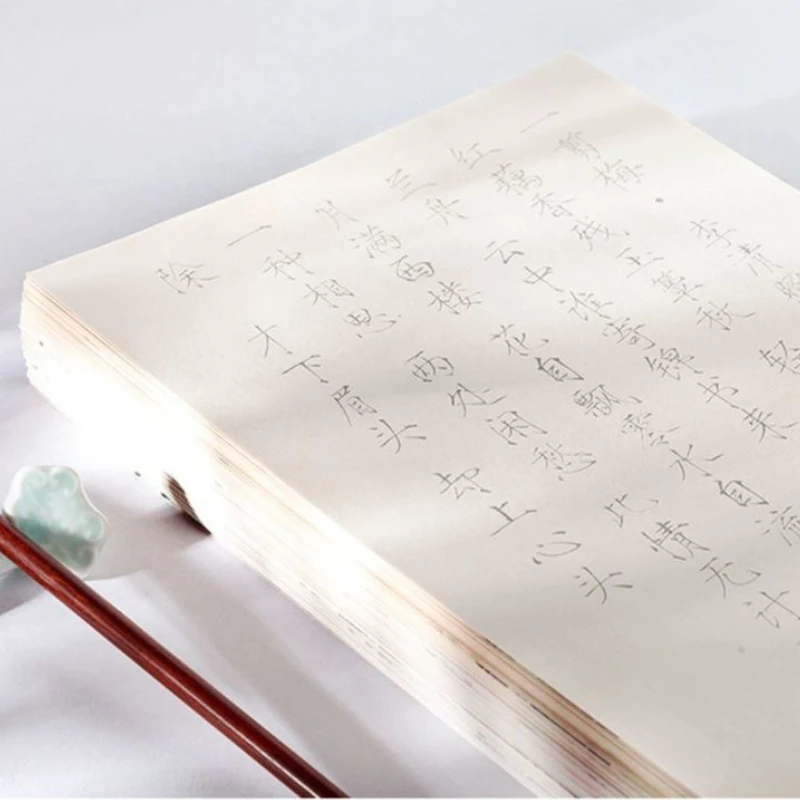 一剪梅 李清照
红藕香残玉簟秋 轻
兰舟 云中谁寄锦书来
月满西楼 花自飘零水自流
一种相思 两处闲愁 此情无计
除 才下眉头 却上心头